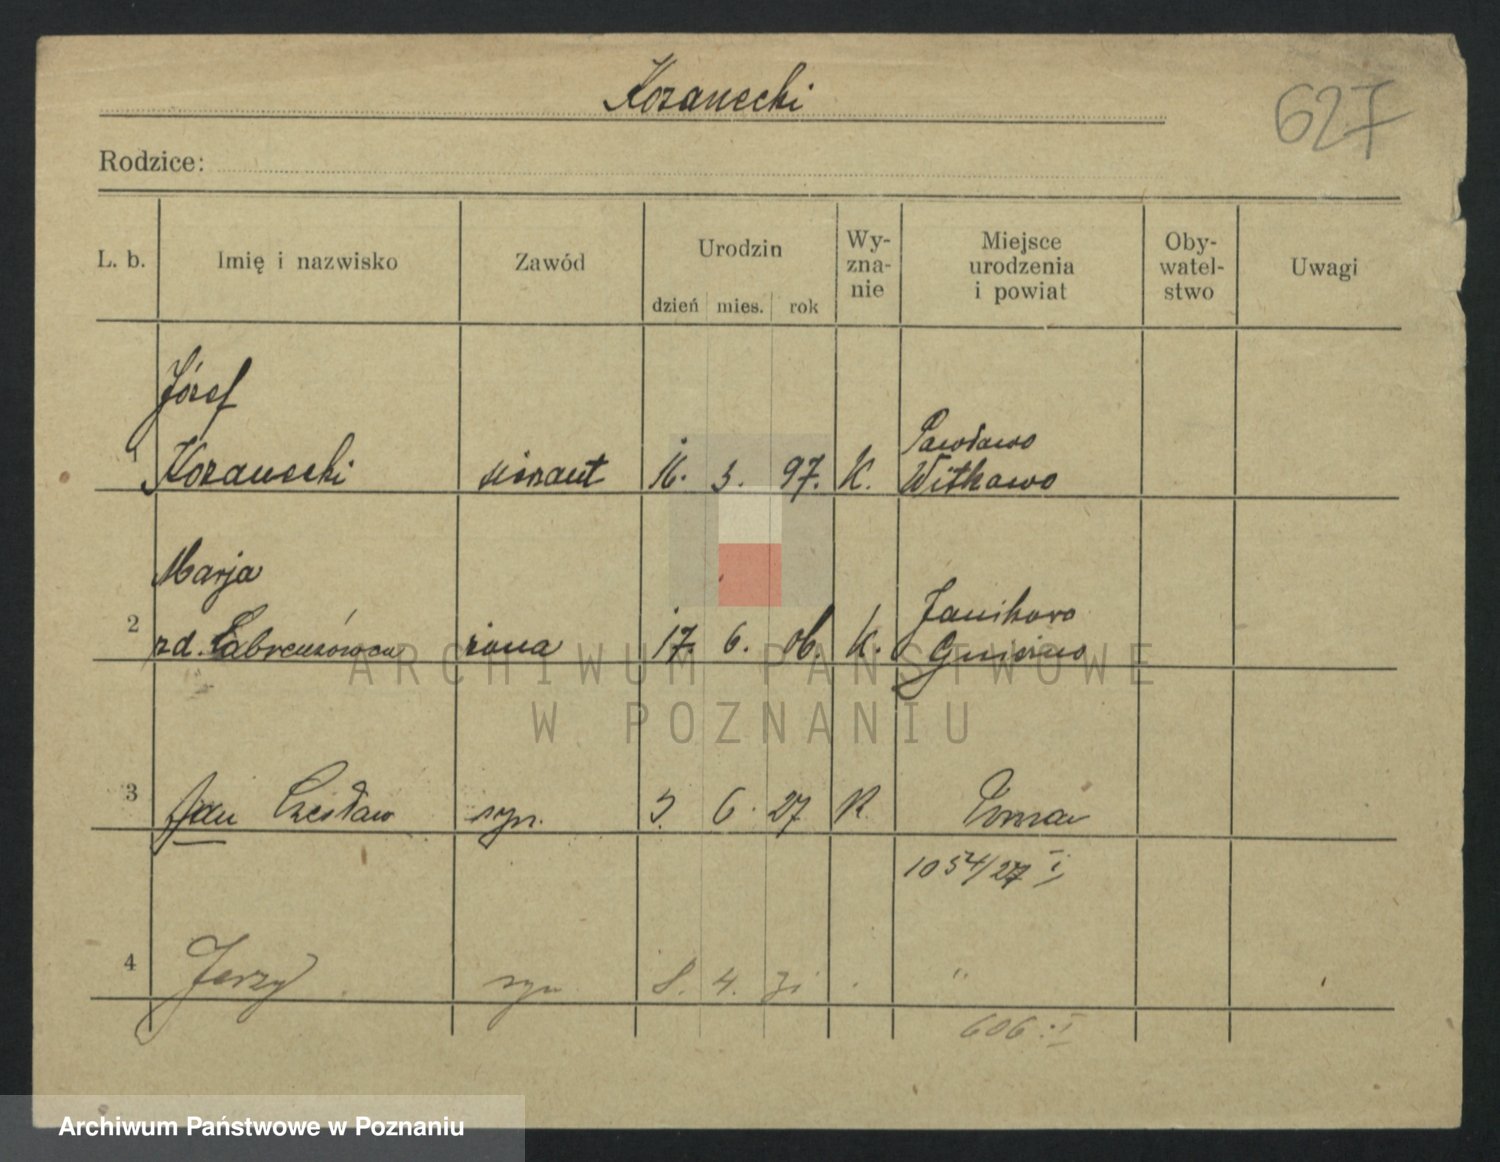 Kozanecki
627
Rodzice:
L. b. Imię i nazwisko Zawód Urodzin dzień mies. rok Wy-zna-nie Miejsce urodzenia i powiat Oby-watel-stwo Uwagi
Józef
Pawłowo
1 Kozanecki sierżant 16. 3. 97. K. Witkowo
Marja
Janikowo
2 żona 17. 6. 06. K. Gniezno
3 Jan Czesław syn. 3. 6. 27 K.
1054/27 I
4 Jerzy syn 8. 4. 31 . "
606 : I
ARCHIWUM PAŃSTWOWE
W POZNANIU
Archiwum Państwowe w Poznaniu